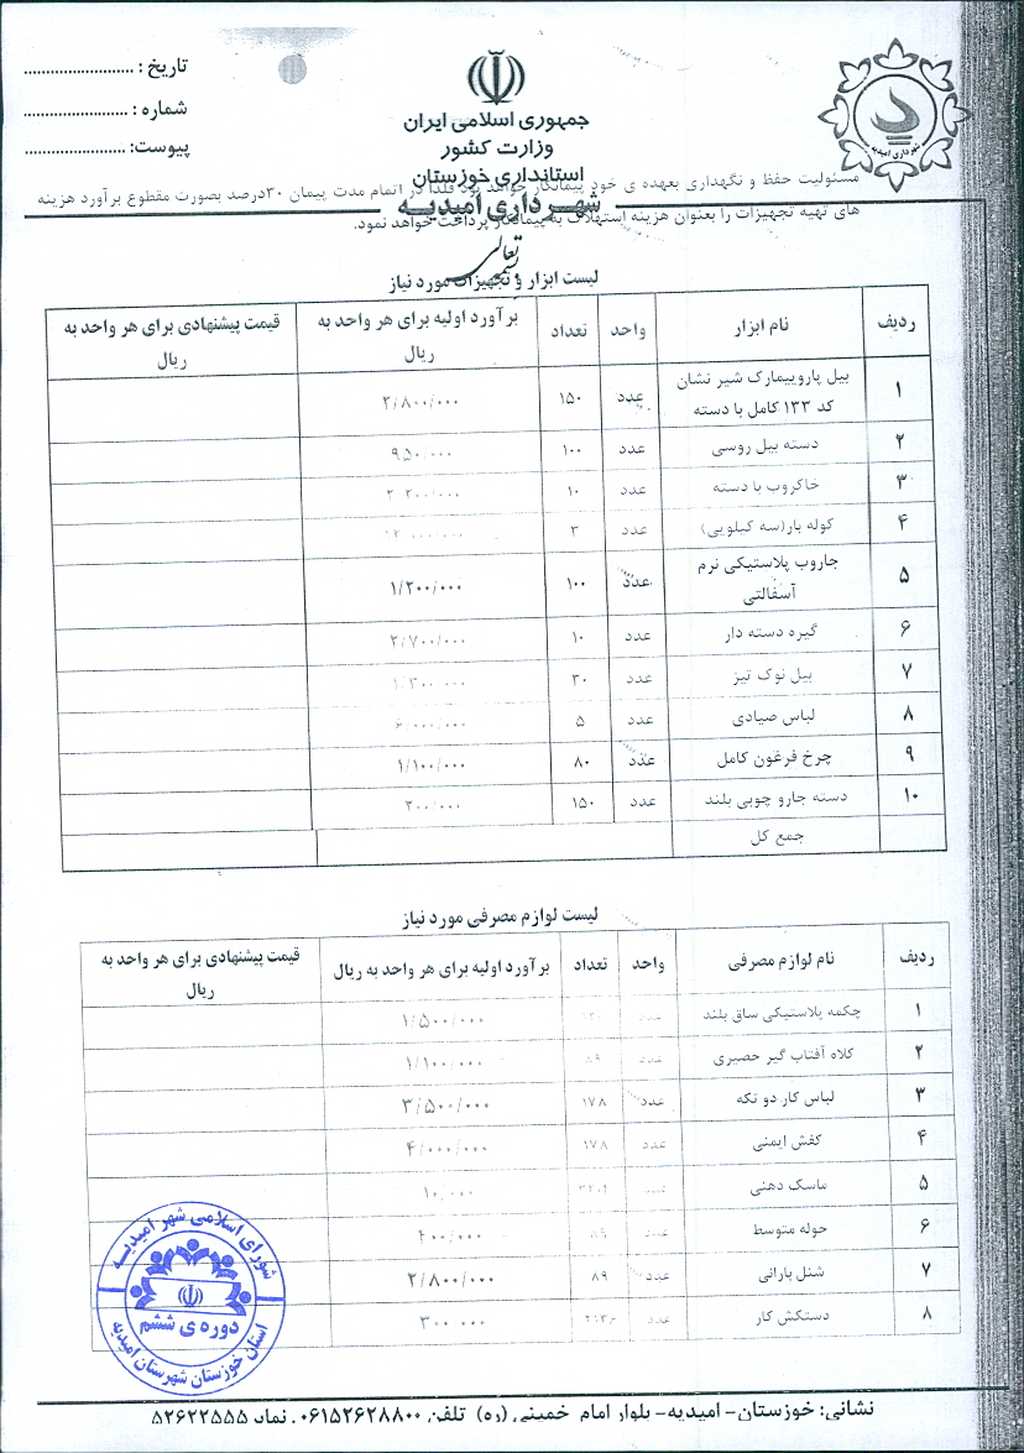 تاریخ : ........................
شماره : ........................
پیوست: ........................
جمهوری اسلامی ایران
وزارت کشور
استانداری خوزستان
شهرداری امیدیه
شهرداری امیدیه
مسئولیت حفظ و نگهداری بعهده ی خود پیمانکار خواهد بود در اتمام مدت پیمان ۳۰درصد بصورت مقطوع برآورد هزینه
های تهیه تجهیزات را بعنوان هزینه استهلاک به پیمانکار پرداخت خواهد نمود.
بسمه تعالی
لیست ابزار و تجهیزات مورد نیاز
ردیف نام ابزار واحد تعداد برآورد اولیه برای هر واحد به ریال قیمت پیشنهادی برای هر واحد به ریال
۱ بیل پاروییمارک شیر نشان کد ۱۳۳ کامل با دسته عدد ۱۵۰ ۲/۸۰۰/۰۰۰
۲ دسته بیل روسی عدد ۱۰۰ ۹۵۰/۰۰۰
۳ خاکروب با دسته عدد ۱۰
۴ کوله بار(سه کیلویی) عدد ۳
۵ جاروب پلاستیکی نرم آسفالتی عدد ۱۰۰ ۱/۲۰۰/۰۰۰
۶ گیره دسته دار عدد ۱۰ ۲/۷۰۰/۰۰۰
۷ بیل نوک تیز عدد ۳۰
۸ لباس صیادی عدد ۵
۹ چرخ فرغون کامل عدد ۸۰ ۱/۱۰۰/۰۰۰
۱۰ دسته جارو چوبی بلند عدد ۱۵۰
جمع کل
لیست لوازم مصرفی مورد نیاز
ردیف نام لوازم مصرفی واحد تعداد برآورد اولیه برای هر واحد به ریال قیمت پیشنهادی برای هر واحد به ریال
۱ چکمه پلاستیکی ساق بلند عدد ۱/۵۰۰/۰۰۰
۲ کلاه آفتاب گیر حصیری عدد ۸۹ ۱/۱۰۰/۰۰۰
۳ لباس کار دو تکه عدد ۱۷۸ ۳/۵۰۰/۰۰۰
۴ کفش ایمنی عدد ۱۷۸ ۴/۰۰۰/۰۰۰
۵ ماسک دهنی عدد
۶ حوله متوسط عدد
۷ شنل بارانی عدد ۸۹ ۲/۸۰۰/۰۰۰
۸ دستکش کار عدد ۳۰۰/۰۰۰
شورای اسلامی شهر امیدیه
دوره ی ششم
استان خوزستان شهرستان امیدیه
نشانی: خوزستان- امیدیه- بلوار امام خمینی (ره) تلفن ۰۶۱۵۲۶۲۸۸۰۰ نمابر ۵۲۶۲۲۵۵۵